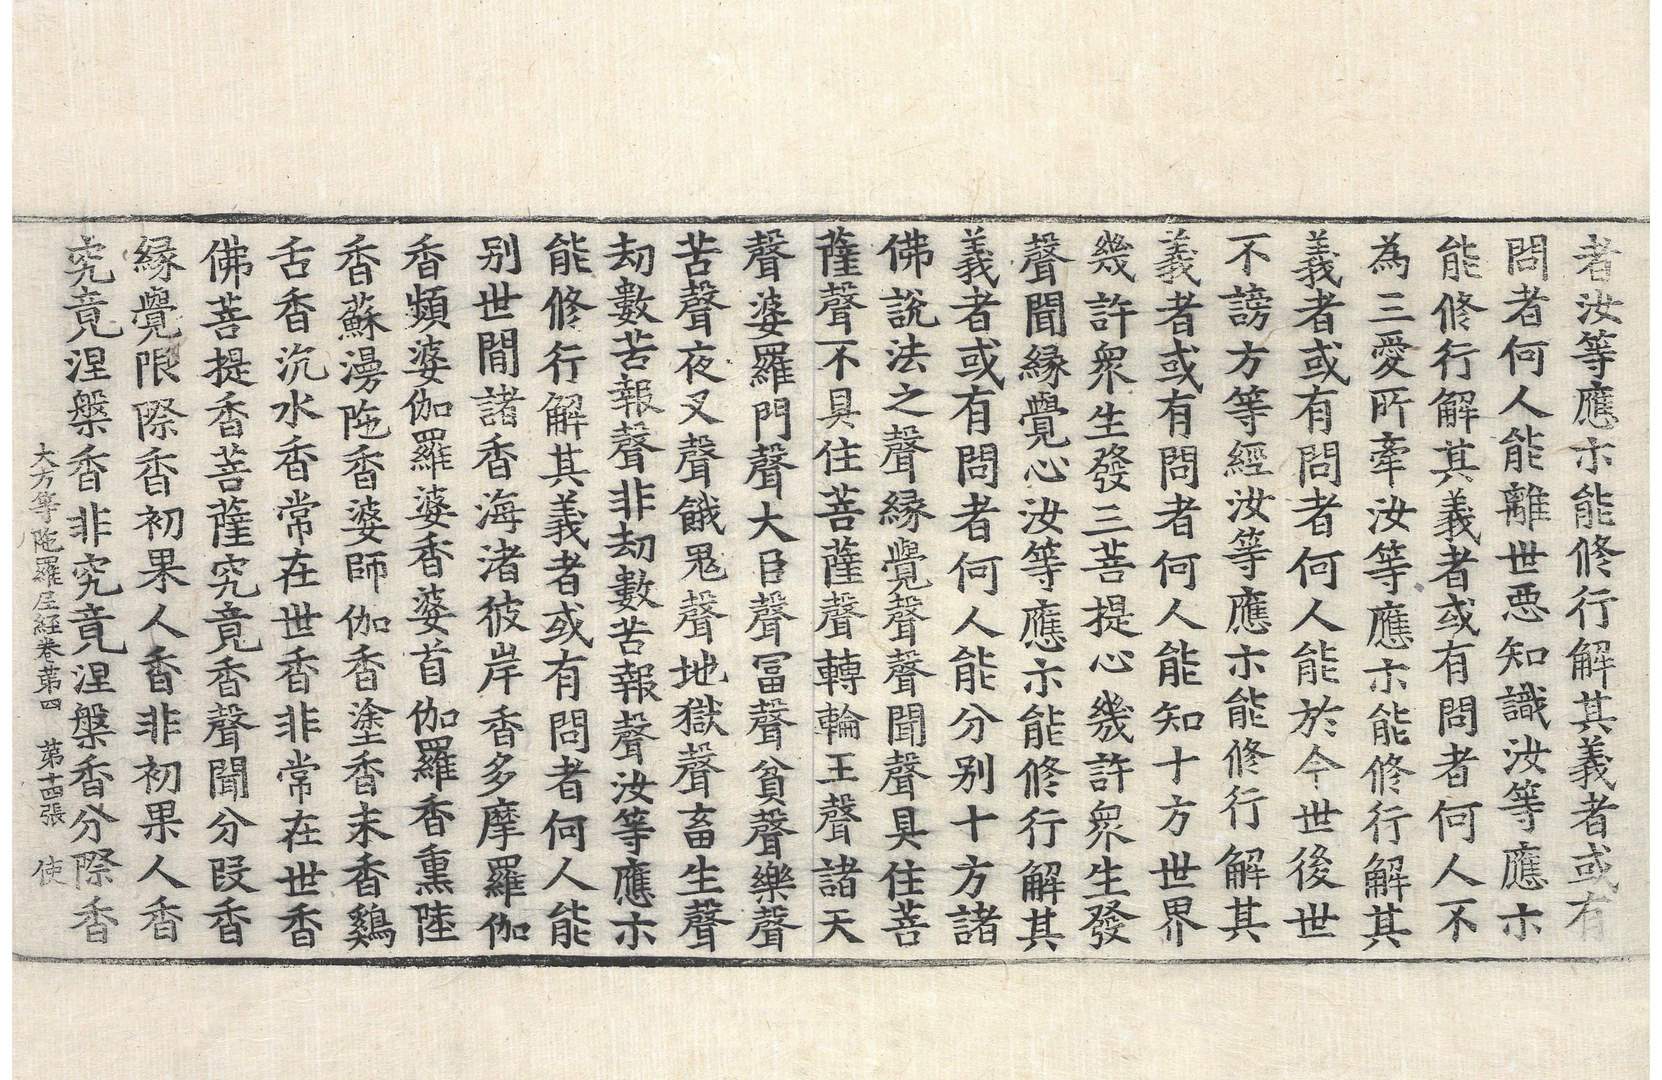 者汝等應亦能修行解其義者或有
問者何人能離世惡知識汝等應亦
能修行解其義者或有問者何人不
為三愛所牽汝等應亦能修行解其
義者或有問者何人能於今世後世
不謗方等經汝等應亦能修行解其
義者或有問者何人能知十方世界
幾許衆生發三菩提心幾許衆生發
聲聞縁覺心汝等應亦能修行解其
義者或有問者何人能分别十方諸
佛說法之聲縁覺聲聲聞聲具住菩
薩聲不具住菩薩聲轉輪王聲諸天
聲婆羅門聲大臣聲冨聲貧聲樂聲
苦聲夜叉聲餓鬼聲地獄聲畜生聲
劫數苦報聲非劫數苦報聲汝等應亦
能修行解其義者或有問者何人能
别世間諸香海渚彼岸香多摩羅伽
香頻婆伽羅婆香婆首伽羅香熏陸
香蘇漫陁香婆師伽香塗香末香鷄
舌香沉水香常在世香非常在世香
佛菩提香菩薩究竟香聲聞分段香
縁覺限際香初果人香非初果人香
究竟涅槃香非究竟涅槃香分際香
大方等陁羅尼經卷第四 第十四張 使